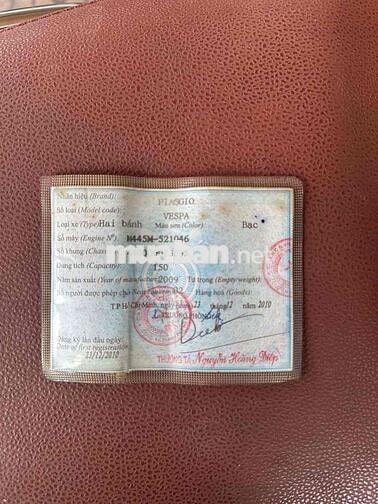 Nhãn hiệu (Brand): PIAGGIO
Số loại (Model code): VESPA
Loại xe (Type) Hai bánh Màu sơn (Color): Bạc
Số máy (Engine Nº) M445M-521046
Số khung (Chass
muaban.net
Dung tích (Capacity): 150
Năm sản xuất (Year of manufacture) 2009 Tự trọng (Empty weight):
Số người được phép chở Hàng hoá (Goods):
T.P Hồ Chí Minh, ngày 23 tháng 12 năm 2010
TRƯỞNG PHÒNG
Đăng ký lần đầu ngày
Date of first registration
23/12/2010
THƯỢNG TÁ Nguyễn Hoàng Điệp